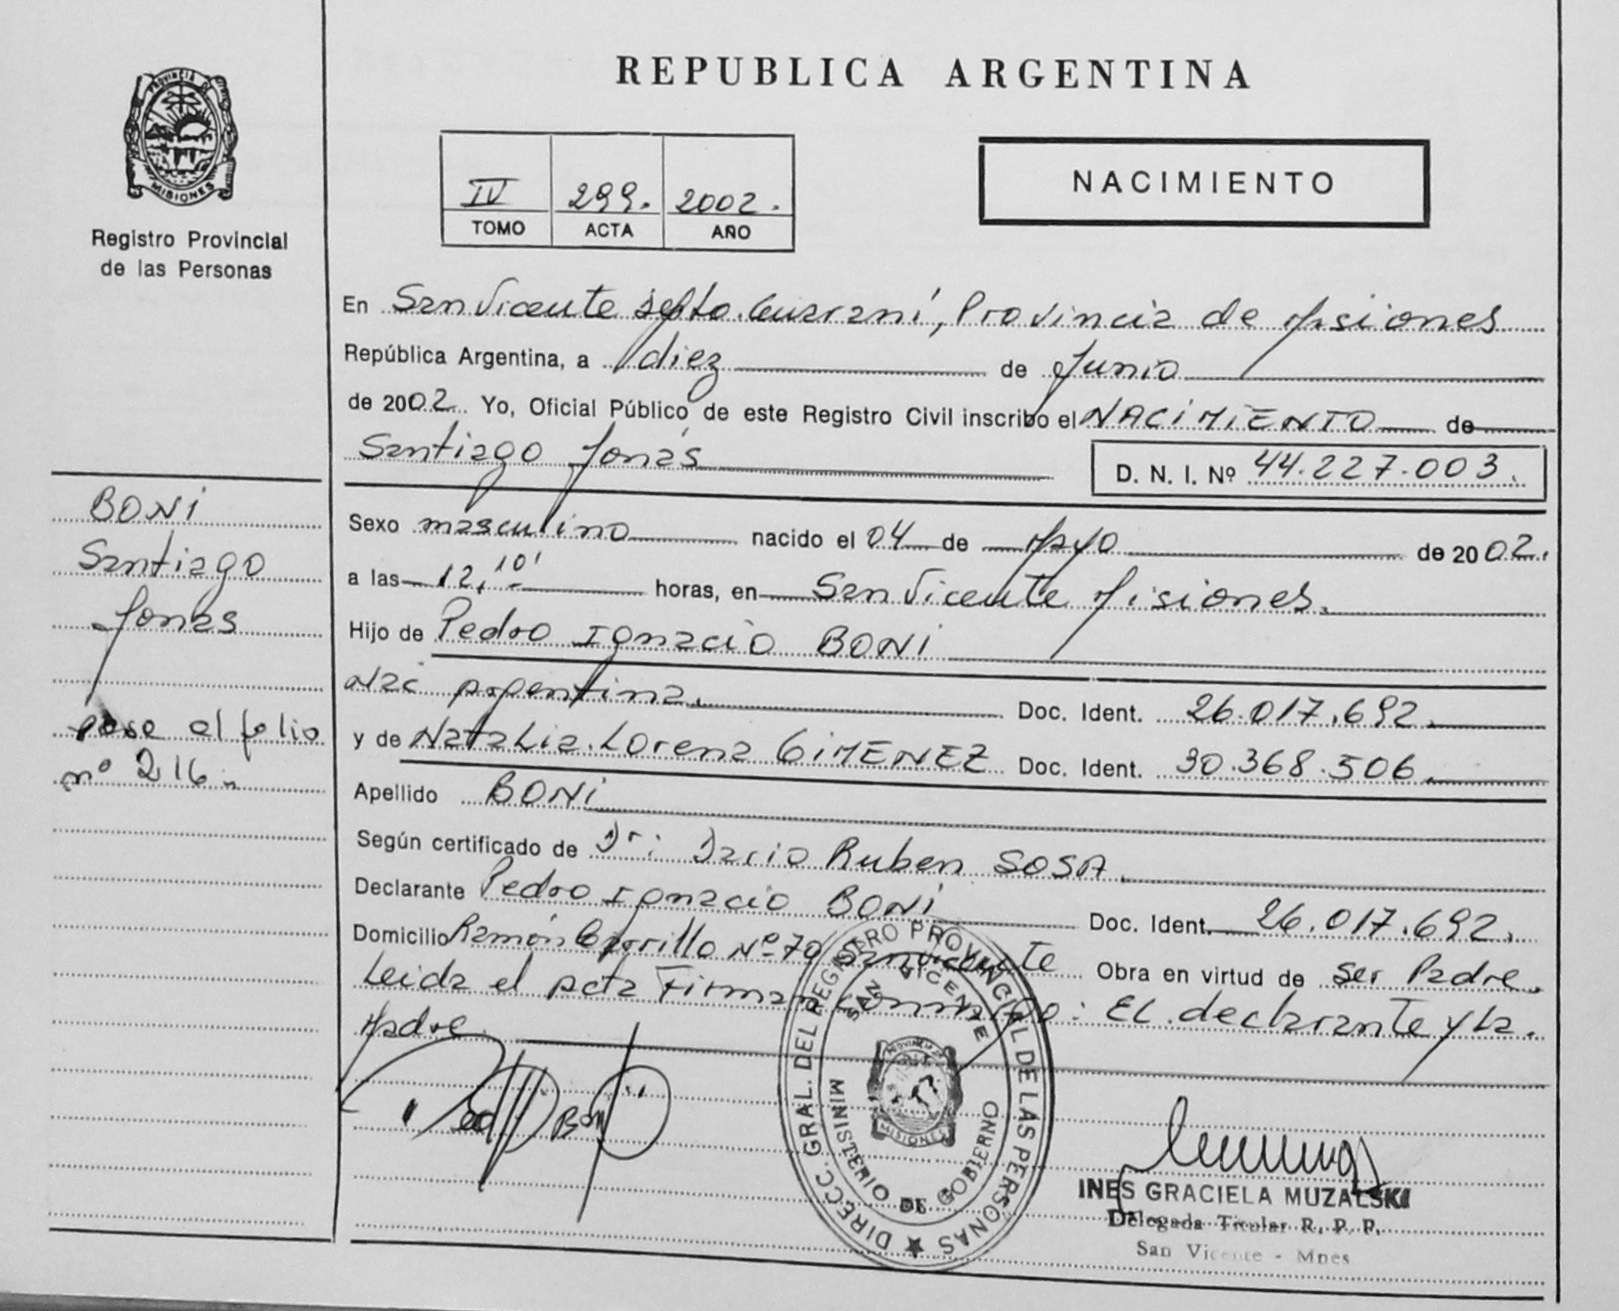 REPUBLICA ARGENTINA
PROVINCIA DE
MISIONES
Registro Provincial
de las Personas
IV 299. 2002.
TOMO ACTA AÑO
NACIMIENTO
En San Vicente Depto. Guaraní, Provincia de Misiones
República Argentina, a diez de Junio
de 2002. Yo, Oficial Público de este Registro Civil inscribo el NACIMIENTO de
Santiago Jonás
D. N. I. Nº 44.227.003.
BONI
Santiago
Jonas
pase al folio
nº 216.
Sexo masculino nacido el 04 de Mayo de 2002.
a las 12,10' horas, en San Vicente Misiones.
Hijo de Pedro Ignacio BONI
Nac argentina. Doc. Ident. 26.017.692.
y de Natalia Lorena GIMENEZ Doc. Ident. 30.368.506.
Apellido BONI
Según certificado de Dr: Dario Ruben SOSA.
Declarante Pedro Ignacio BONI Doc. Ident. 26.017.692.
Domicilio Ramón Carrillo Nº 70 San Vicente Obra en virtud de ser Padre.
Leida el acta Firman conmigo: El declarante y la.
Madre.
DIRECC. GRAL. DEL REGISTRO PROVINCIAL DE LAS PERSONAS
SAN VICENTE
MINISTERIO DE GOBIERNO
PROVINCIA DE
MISIONES
INES GRACIELA MUZALSKI
Delegada Titular R. P. P.
San Vicente - Mnes